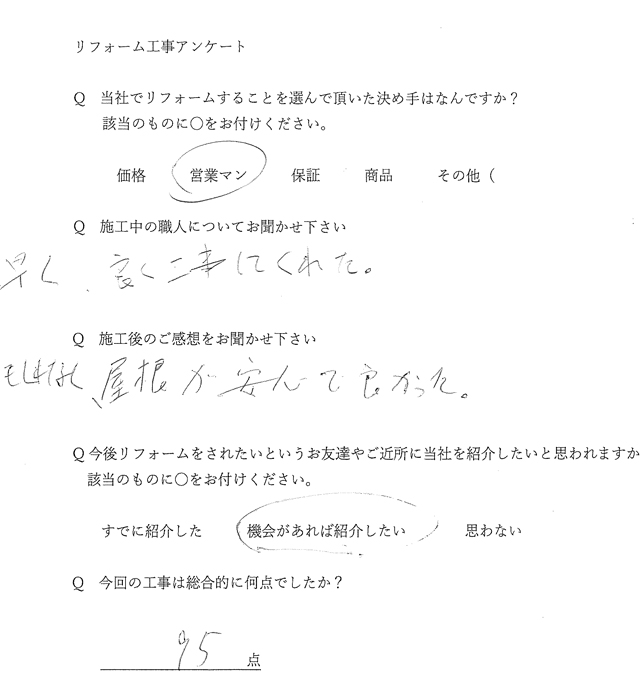 リフォーム工事アンケート
Q 当社でリフォームすることを選んで頂いた決め手はなんですか？
該当のものに〇をお付けください。
価格 営業マン 保証 商品 その他（
Q 施工中の職人についてお聞かせ下さい
早く、良く工事してくれた。
Q 施工後のご感想をお聞かせ下さい
、屋根が安んで良かった。
Q 今後リフォームをされたいというお友達やご近所に当社を紹介したいと思われますか
該当のものに〇をお付けください。
すでに紹介した 機会があれば紹介したい 思わない
Q 今回の工事は総合的に何点でしたか？
95 点